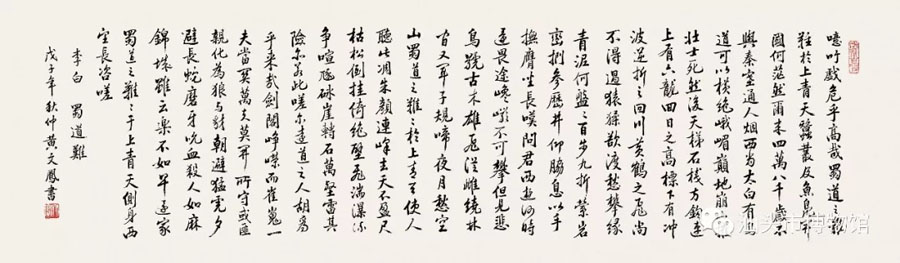 噫吁戲危乎高哉蜀道之難
難於上青天蠶叢及魚鳧開
國何茫然爾來四萬八千歲不
與秦塞通人烟西當太白有鳥
道可以橫絕峨嵋巔地崩山摧
壯士死然後天梯石棧方鉤連
上有六龍回日之高標下有冲
波逆折之回川黃鶴之飛尚
不得過猿猱欲渡愁攀緣
青泥何盤盤百步九折縈岩
巒捫參歷井仰脇息以手
撫膺坐長嘆問君西遊何時
還畏途巉巖不可攀但見悲
鳥號古木雄飛從雌繞林
間又聞子規啼夜月愁空
山蜀道之難難於上青天使人
聽此凋朱顏連峰去天不盈尺
枯松倒挂倚絕壁飛湍瀑流
爭喧豗砯崖轉石萬壑雷其
險也若此嗟爾遠道之人胡為
乎來哉劍閣崢嶸而崔嵬一
夫當關萬夫莫開所守或匪
親化為狼與豺朝避猛虎夕
避長蛇磨牙吮血殺人如麻
錦城雖云樂不如早還家
蜀道之難難于上青天側身西
望長咨嗟
李白 蜀道難
戊子年秋仲黃文鳳書
汕头市博物馆